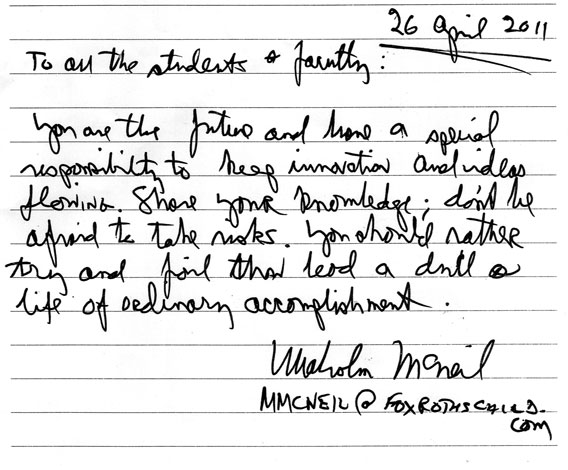 26 April 2011
To all the students & faculty:
You are the future and have a special
responsibility to keep innovation and ideas
flowing. Share your knowledge; don't be
afraid to take risks. You should rather
try and fail than lead a dull
life of ordinary accomplishment.
Malcolm McNeil
MMCNEIL@FOXROTHSCHILD.
COM